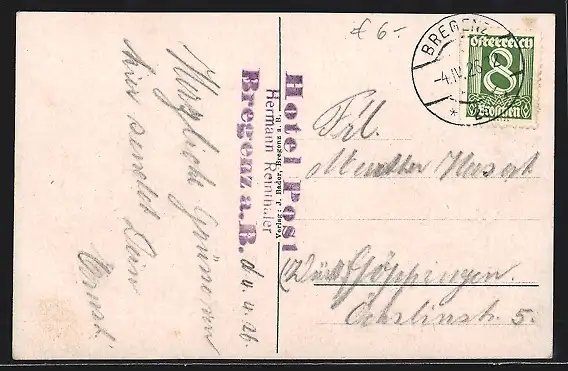 € 6.-
BREGENZ
4.IV.26
Österreich
8
Groschen
Hotel Post
Bregenz a. B.
Hermann Reinthaler
Verlag: J. Bader, Bregenz a. B.
d. 4.4.26.
Herzliche Grüße von
hier sendet Dein
Ernst.
Frl.
Göppingen
5.